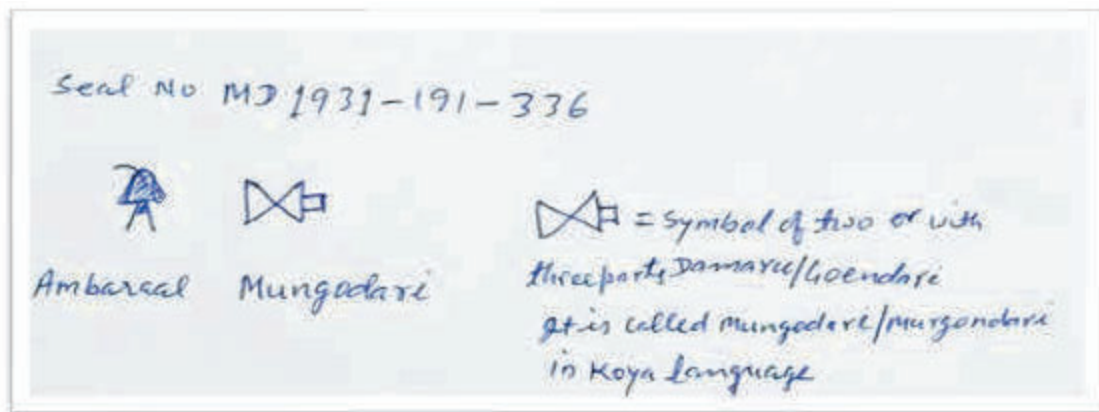 Seal No MD 1931-191-336
Ambaraal Mungodari
= Symbol of two or with
three parts Damaru/Goendari
It is called Mungodari/Murgondari
in Koya language